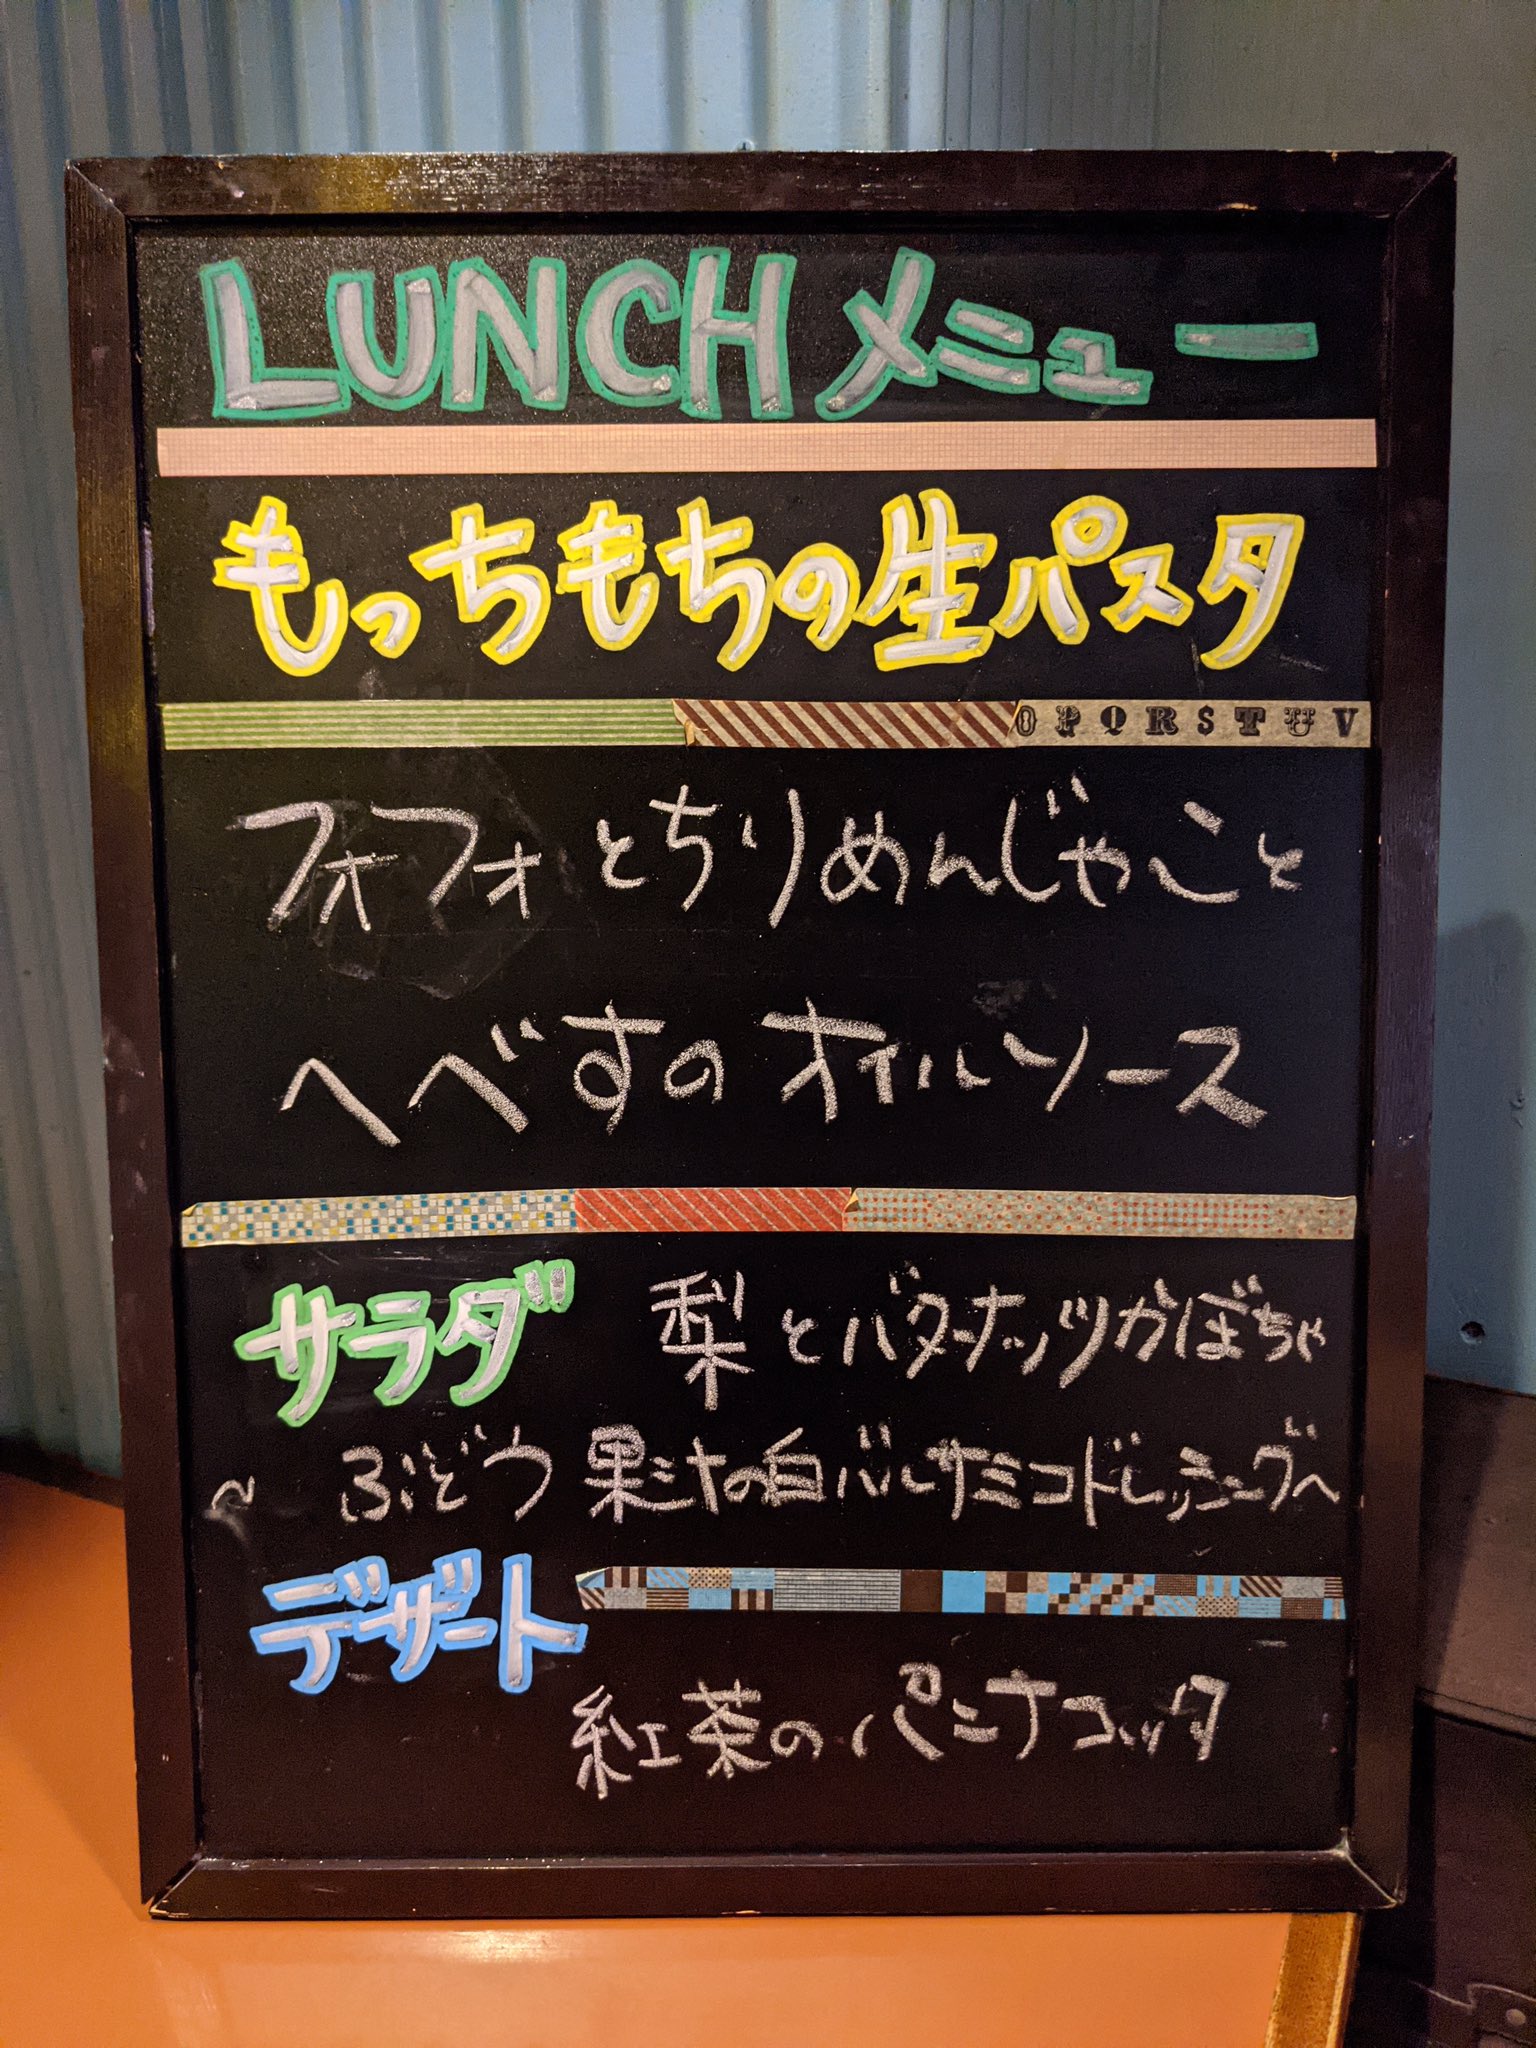 LUNCHメニュー
もっちもちの生パスタ
OPQRSTUV
フォフォとちりめんじゃこと
へべすのオイルソース
サラダ 梨とバターナッツかぼちゃ
~ ぶどう果汁の白バルサミコドレッシング~
デザート
紅茶のパンナコッタ